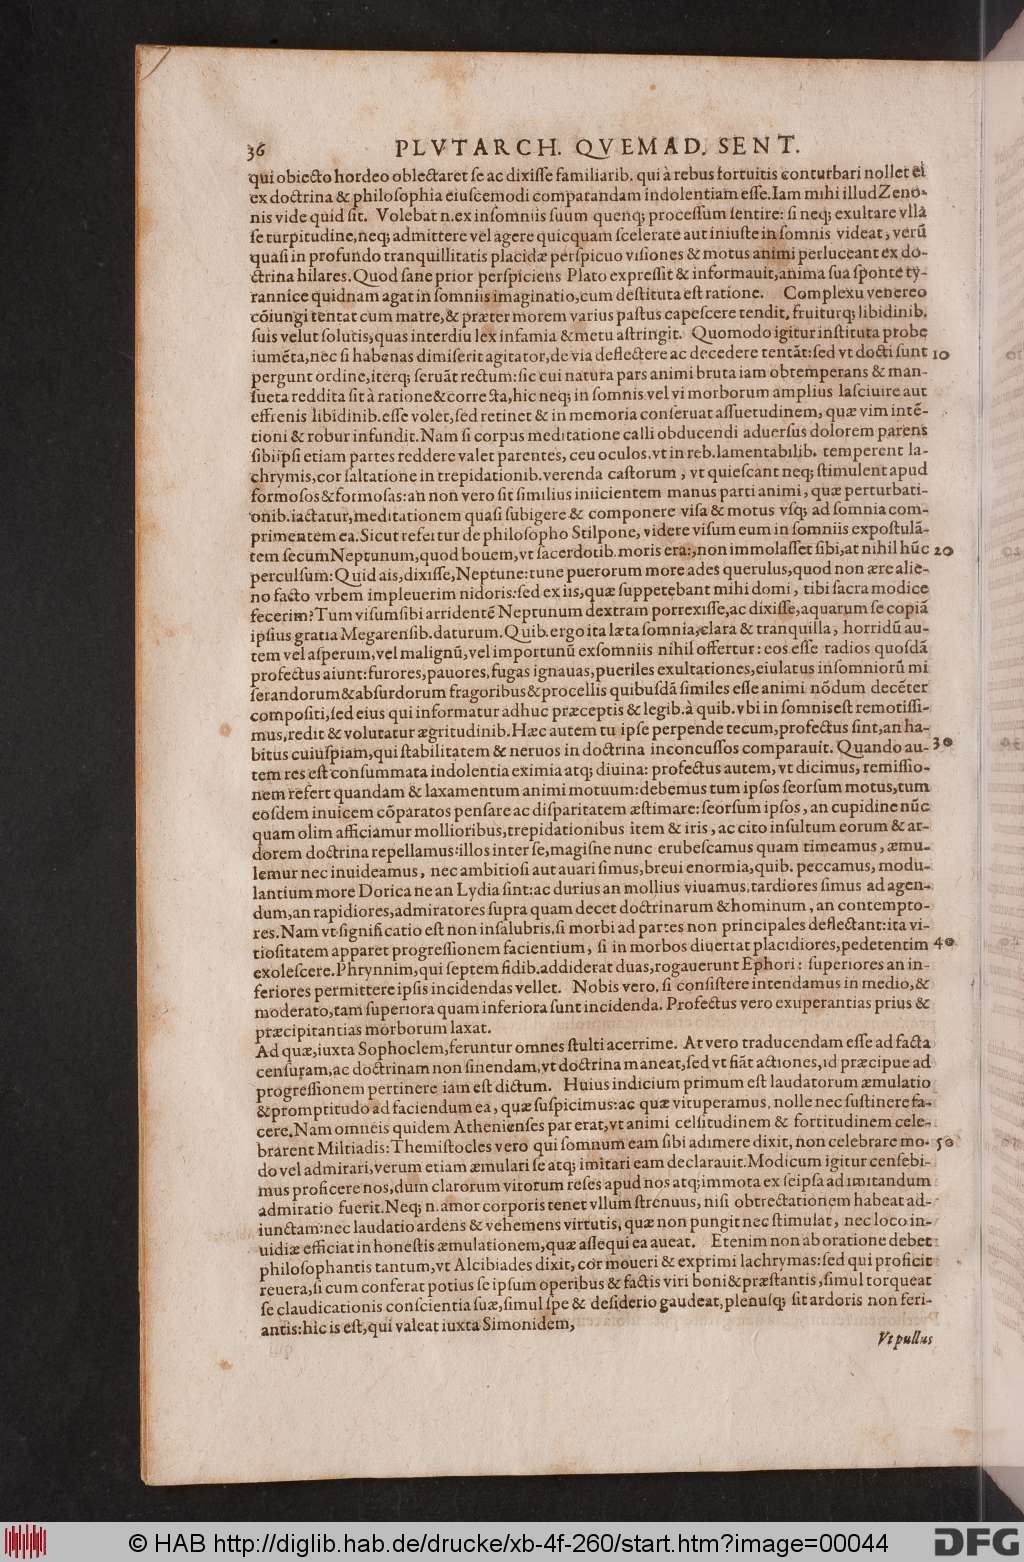 36 PLVTARCH. QVEMAD. SENT.
qui obiecto hordeo oblectaret ſe ac dixiſſe familiarib. qui à rebus fortuitis conturbari nollet ei
ex doctrina & philoſophia eiuſcemodi comparandam indolentiam eſſe. Iam mihi illud Zeno-
nis vide quid ſit. Volebat n. ex inſomniis ſuum quenq; proceſſum ſentire: ſi neq; exultare vlla
ſe turpitudine, neq; admittere vel agere quicquam ſcelerate aut iniuſte in ſomnis videat, verũ
quaſi in profundo tranquillitatis placidæ perſpicuo viſiones & motus animi perluceant ex do-
ctrina hilares. Quod ſane prior perſpiciens Plato expreſſit & informauit, anima ſua ſponte ty-
rannice quidnam agat in ſomniis imaginatio, cum deſtituta eſt ratione. Complexu venereo
cõiungi tentat cum matre, & præter morem varius paſtus capeſcere tendit, fruiturq; libidinib.
ſuis velut ſolutis, quas interdiu lex infamia & metu aſtringit. Quomodo igitur inſtituta probe
iumẽta, nec ſi habenas dimiſerit agitator, de via deflectere ac decedere tentãt: ſed vt docti ſunt 10
pergunt ordine, iterq; ſeruãt rectum: ſic cui natura pars animi bruta iam obtemperans & man-
ſueta reddita ſit à ratione & correcta, hic neq; in ſomnis vel vi morborum amplius laſciuire aut
effrenis libidinib. eſſe volet, ſed retinet & in memoria conſeruat aſſuetudinem, quæ vim intẽ-
tioni & robur infundit. Nam ſi corpus meditatione calli obducendi aduerſus dolorem parens
ſibi ipſi etiam partes reddere valet parentes, ceu oculos. vt in reb. lamentabilib. temperent la-
chrymis, cor ſaltatione in trepidationib. verenda caſtorum, vt quieſcant neq; ſtimulent apud
formoſos & formoſas: an non vero ſit ſimilius iniicientem manus parti animi, quæ perturbati-
onib. iactatur, meditationem quaſi ſubigere & componere viſa & motus vſq; ad ſomnia com-
primentem ea. Sicut refertur de philoſopho Stilpone, videre viſum eum in ſomniis expoſtulã-
tem ſecum Neptunum, quod bouem, vt ſacerdotib. moris erat, non immolaſſet ſibi, at nihil hũc 20
perculſum: Quid ais, dixiſſe, Neptune: tune puerorum more ades querulus, quod non ære alie-
no facto vrbem impleuerim nidoris: ſed ex iis, quæ ſuppetebant mihi domi, tibi ſacra modice
fecerim? Tum viſum ſibi arridentẽ Neptunum dextram porrexiſſe, ac dixiſſe, aquarum ſe copiã
ipſius gratia Megarenſib. daturum. Quib. ergo ita læta ſomnia, clara & tranquilla, horridũ au-
tem vel aſperum, vel malignũ, vel importunũ ex ſomniis nihil offertur: eos eſſe radios quoſdã
profectus aiunt: furores, pauores, fugas ignauas, pueriles exultationes, eiulatus inſomniorũ mi
ſerandorum & abſurdorum fragoribus & procellis quibuſdã ſimiles eſſe animi nõdum decẽter
compoſiti, ſed eius qui informatur adhuc præceptis & legib. à quib. vbi in ſomnis eſt remotiſſi-
mus, redit & volutatur ægritudinib. Hæc autem tu ipſe perpende tecum, profectus ſint, an ha-
bitus cuiuſpiam, qui ſtabilitatem & neruos in doctrina inconcuſſos comparauit. Quando au- 30
tem res eſt conſummata indolentia eximia atq; diuina: profectus autem, vt dicimus, remiſſio-
nem refert quandam & laxamentum animi motuum: debemus tum ipſos ſeorſum motus, tum
eoſdem inuicem cõparatos penſare ac diſparitatem æſtimare: ſeorſum ipſos, an cupidine nũc
quam olim afficiamur mollioribus, trepidationibus item & iris, ac cito inſultum eorum & ar-
dorem doctrina repellamus: illos inter ſe, magiſne nunc erubeſcamus quam timeamus, æmu-
lemur nec inuideamus, nec ambitioſi aut auari ſimus, breui enormia, quib. peccamus, modu-
lantium more Dorica ne an Lydia ſint: ac durius an mollius viuamus, tardiores ſimus ad agen-
dum, an rapidiores, admiratores ſupra quam decet doctrinarum & hominum, an contempto-
res. Nam vt ſignificatio eſt non inſalubris, ſi morbi ad partes non principales deflectant: ita vi-
tioſitatem apparet progreſſionem facientium, ſi in morbos diuertat placidiores, pedetentim 40
exoleſcere. Phrynnim, qui ſeptem fidib. addiderat duas, rogauerunt Ephori: ſuperiores an in-
feriores permittere ipſis incidendas vellet. Nobis vero, ſi conſiſtere intendamus in medio, &
moderato, tam ſuperiora quam inferiora ſunt incidenda. Profectus vero exuperantias prius &
præcipitantias morborum laxat.
Ad quæ, iuxta Sophoclem, feruntur omnes ſtulti acerrime. At vero traducendam eſſe ad facta
cenſuram, ac doctrinam non ſinendam, vt doctrina maneat, ſed vt fiãt actiones, id præcipue ad
progreſſionem pertinere iam eſt dictum. Huius indicium primum eſt laudatorum æmulatio
& promptitudo ad faciendum ea, quæ ſuſpicimus: ac quæ vituperamus, nolle nec ſuſtinere fa-
cere. Nam omneis quidem Athenienſes par erat, vt animi celſitudinem & fortitudinem cele-
brarent Miltiadis: Themiſtocles vero qui ſomnum eam ſibi adimere dixit, non celebrare mo- 50
do vel admirari, verum etiam æmulari ſe atq; imitari eam declarauit. Modicum igitur cenſebi-
mus proficere nos, dum clarorum virorum reſes apud nos atq; immota ex ſeipſa ad imitandum
admiratio fuerit. Neq; n. amor corporis tenet vllum ſtrenuus, niſi obtrectationem habeat ad-
iunctam: nec laudatio ardens & vehemens virtutis, quæ non pungit nec ſtimulat, nec loco in-
uidiæ efficiat in honeſtis æmulationem, quæ aſſequi ea aueat. Etenim non ab oratione debet
philoſophantis tantum, vt Alcibiades dixit, cor moueri & exprimi lachrymas: ſed qui proficit
reuera, ſi cum conferat potius ſe ipſum operibus & factis viri boni & præſtantis, ſimul torqueat
ſe claudicationis conſcientia ſuæ, ſimul ſpe & deſiderio gaudeat, plenuſq; ſit ardoris non feri-
antis: hic is eſt, qui valeat iuxta Simonidem,
Vt pullus
© HAB http://diglib.hab.de/drucke/xb-4f-260/start.htm?image=00044 DFG